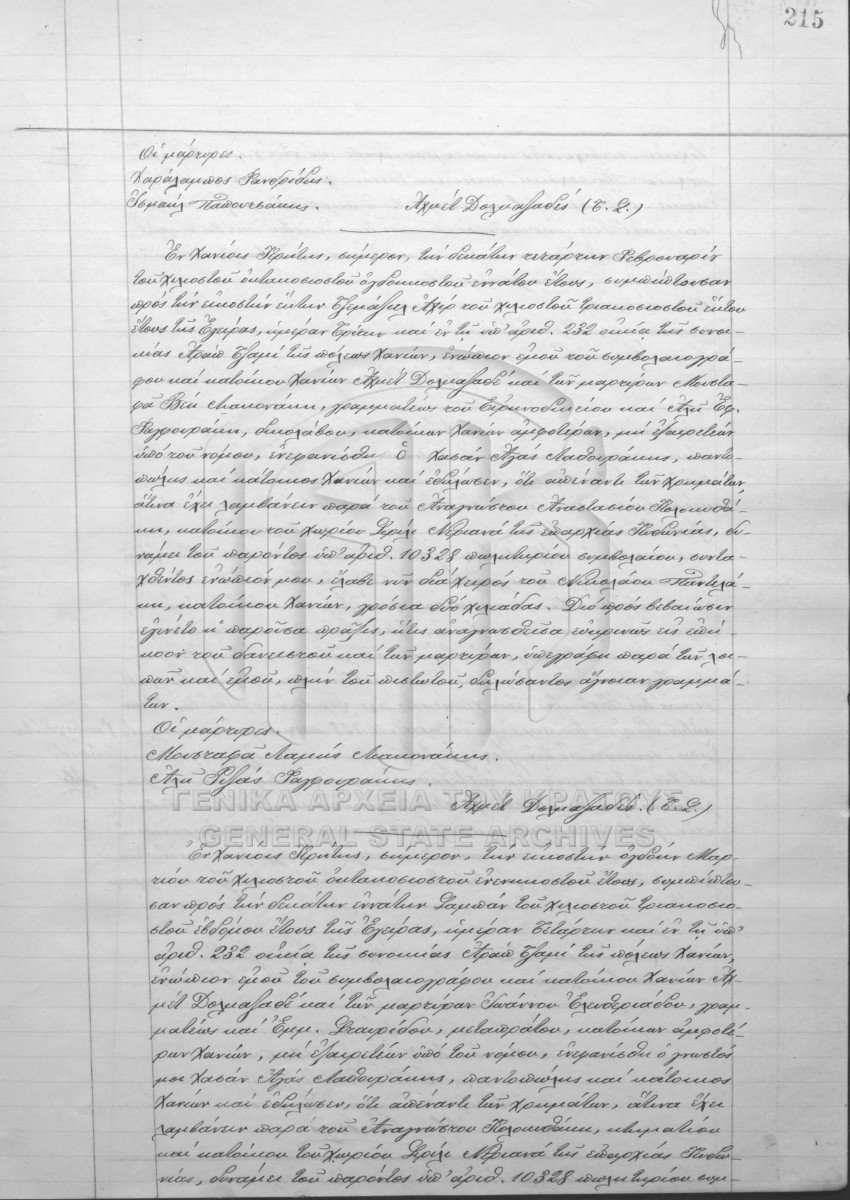 215
Οἱ μάρτυρες.
Χαράλαμπος Φανδρίδης.
Ἰσμαήλ Παπουτσάκης. Ἀχμέτ Δολμαζαδές (Τ. Σ.)
Ἐν Χανίοις Κρήτης, σήμερον, τήν δεκάτην τετάρτην Φεβρουαρίου
τοῦ χιλιοστοῦ ὀκτακοσιοστοῦ ὀγδοηκοστοῦ ἐννάτου ἔτους, συμπίπτουσαν
πρός τήν εἰκοστήν ἕκτην Τζεμαζήλ Ἀχήρ τοῦ χιλιοστοῦ τριακοσιοστοῦ ἕκτου
ἔτους τῆς Ἐγείρας, ἡμέραν Τρίτην καί ἐν τῇ ὑπ' ἀριθ. 232 οἰκίᾳ τῆς συνοι-
κίας Ἀράπ Τζαμί τῆς πόλεως Χανίων, ἐνώπιον ἐμοῦ τοῦ συμβολαιογρά-
φου καί κατοίκου Χανίων Ἀχμέτ Δολμαζαδέ καί τῶν μαρτύρων Μουστα-
φᾶ Βέη Λιακονάκη, γραμματέως τοῦ Εἰρηνοδικείου καί Ἀλῆ Ἐφ.
Φαγφουράκη, δικολάβου, κατοίκων Χανίων ἀμφοτέρων, μή ἐξαιρετέων
ὑπό τοῦ νόμου, ἐνεφανίσθη ὁ Χασάν Ἀγᾶς Λαθουράκης, παντο-
πώλης καί κάτοικος Χανίων καί ἐδήλωσεν, ὅτι ἀπέναντι τῶν χρημάτων,
ἅτινα ἔχει λαμβάνειν παρά τοῦ Ἀναγνώστου Ἀναστασίου Κολοκυθά-
κη, κατοίκου τοῦ χωρίου Σιρίλι Νεριανά τῆς ἐπαρχίας Κυδωνίας, δυ-
νάμει τοῦ παρόντος ὑπ' ἀριθ. 10328 πωλητηρίου συμβολαίου, συντα-
χθέντος ἐνώπιόν μου, ἔλαβε νῦν διά χειρός τοῦ Νικολάου Παντελά-
κη, κατοίκου Χανίων, γρόσια δύο χιλιάδας. Διό πρός βεβαίωσιν
ἐγένετο ἡ παροῦσα πρᾶξις, ἥτις ἀναγνωσθεῖσα εὐκρινῶς εἰς ἐπή-
κοον τοῦ δανειστοῦ καί τῶν μαρτύρων, ὑπεγράφη παρά τῶν λοι-
πῶν καί ἐμοῦ, πλήν τοῦ πιστωτοῦ, δηλώσαντος ἄγνοιαν γραμμά-
των.
Οἱ μάρτυρες.
Μουσταφᾶ Λιακονάκης.
Ἀλῆ Ριζᾶς Φαγφουράκης.
Ἀχμέτ Δολμαζαδές. (Τ. Σ.)
ΓΕΝΙΚΑ ΑΡΧΕΙΑ ΤΟΥ ΚΡΑΤΟΥΣ
GENERAL STATE ARCHIVES
Ἐν Χανίοις Κρήτης, σήμερον, τήν εἰκοστήν ὀγδόην Μαρ-
τίου τοῦ χιλιοστοῦ ὀκτακοσιοστοῦ ἐνενηκοστοῦ ἔτους, συμπίπτου-
σαν πρός τήν δεκάτην ἐννάτην Σαμπάν τοῦ χιλιοστοῦ τριακοσιο-
στοῦ ἑβδόμου ἔτους τῆς Ἐγείρας, ἡμέραν Τετάρτην καί ἐν τῇ ὑπ'
ἀριθ. 232 οἰκίᾳ τῆς συνοικίας Ἀράπ Τζαμί τῆς πόλεως Χανίων,
ἐνώπιον ἐμοῦ τοῦ συμβολαιογράφου καί κατοίκου Χανίων Ἀχ-
μέτ Δολμαζαδέ καί τῶν μαρτύρων Ἰωάννου Ἐλευθεριάδου, γραμ-
ματέως καί Ἐμμ. Σταυρίδου, μεταπράτου, κατοίκων ἀμφοτέ-
ρων Χανίων, μή ἐξαιρετέων ὑπό τοῦ νόμου, ἐνεφανίσθη ὁ γνωστός
μοι Χασάν Ἀγᾶς Λαθουράκης, παντοπώλης καί κάτοικος
Χανίων καί ἐδήλωσεν, ὅτι ἀπέναντι τῶν χρημάτων, ἅτινα ἔχει
λαμβάνειν παρά τοῦ Ἀναγνώστου Κολοκυθάκη, κτηματίου
καί κατοίκου τοῦ χωρίου Σιρίλι Νεριανά τῆς ἐπαρχίας Κυδω-
νίας, δυνάμει τοῦ παρόντος ὑπ' ἀριθ. 10328 πωλητηρίου συμ-